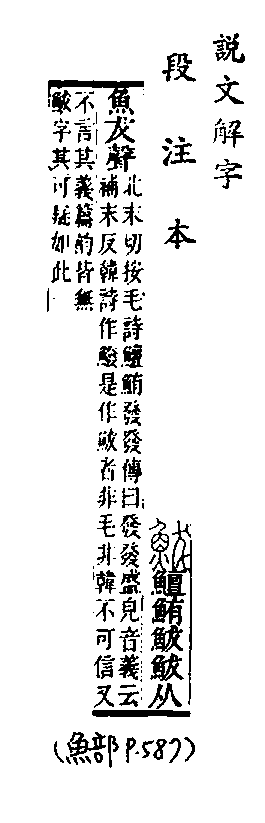 說文解字
段注本
鮁鱣鮪鮁鮁从
魚犮聲
北末切按毛詩鱣鮪發發傳曰發發盛皃音義云
補末反韓詩作鱍是作鮁者非毛非韓不可信又
不言其義篇韵皆無
鮁字其可疑如此
(魚部P.587)